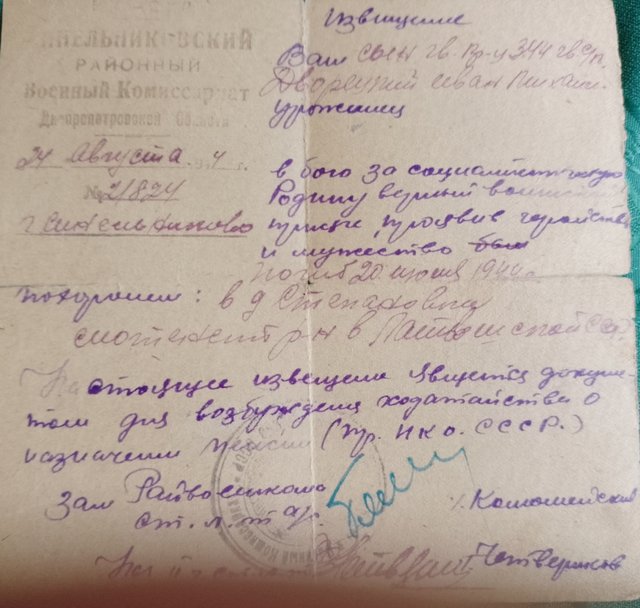 Извещение
НЕЛЬНИКОВСКИЙ
РАЙОННЫЙ
Военный Комиссариат
Днепропетровской Области
24 августа 194 г.
№ 2/824
г. Синельниково
Ваш сын гв. кр-ц 344 гв. сп.
Дворецкий Иван Михаил.
уроженец
в бою за социалистическую
Родину верный воинской
присяге, проявив геройство
и мужество был
погиб 20 июля 1944 г.
похоронен: в д Степановка
р-н в Латвийской ССР.
Настоящее извещение является докумен-
том для возбуждения ходатайства о
назначении пенсии (пр. НКО. СССР.)
Зам Райвоенкома
ст. л. т а/с
Коломейский
Четвериков